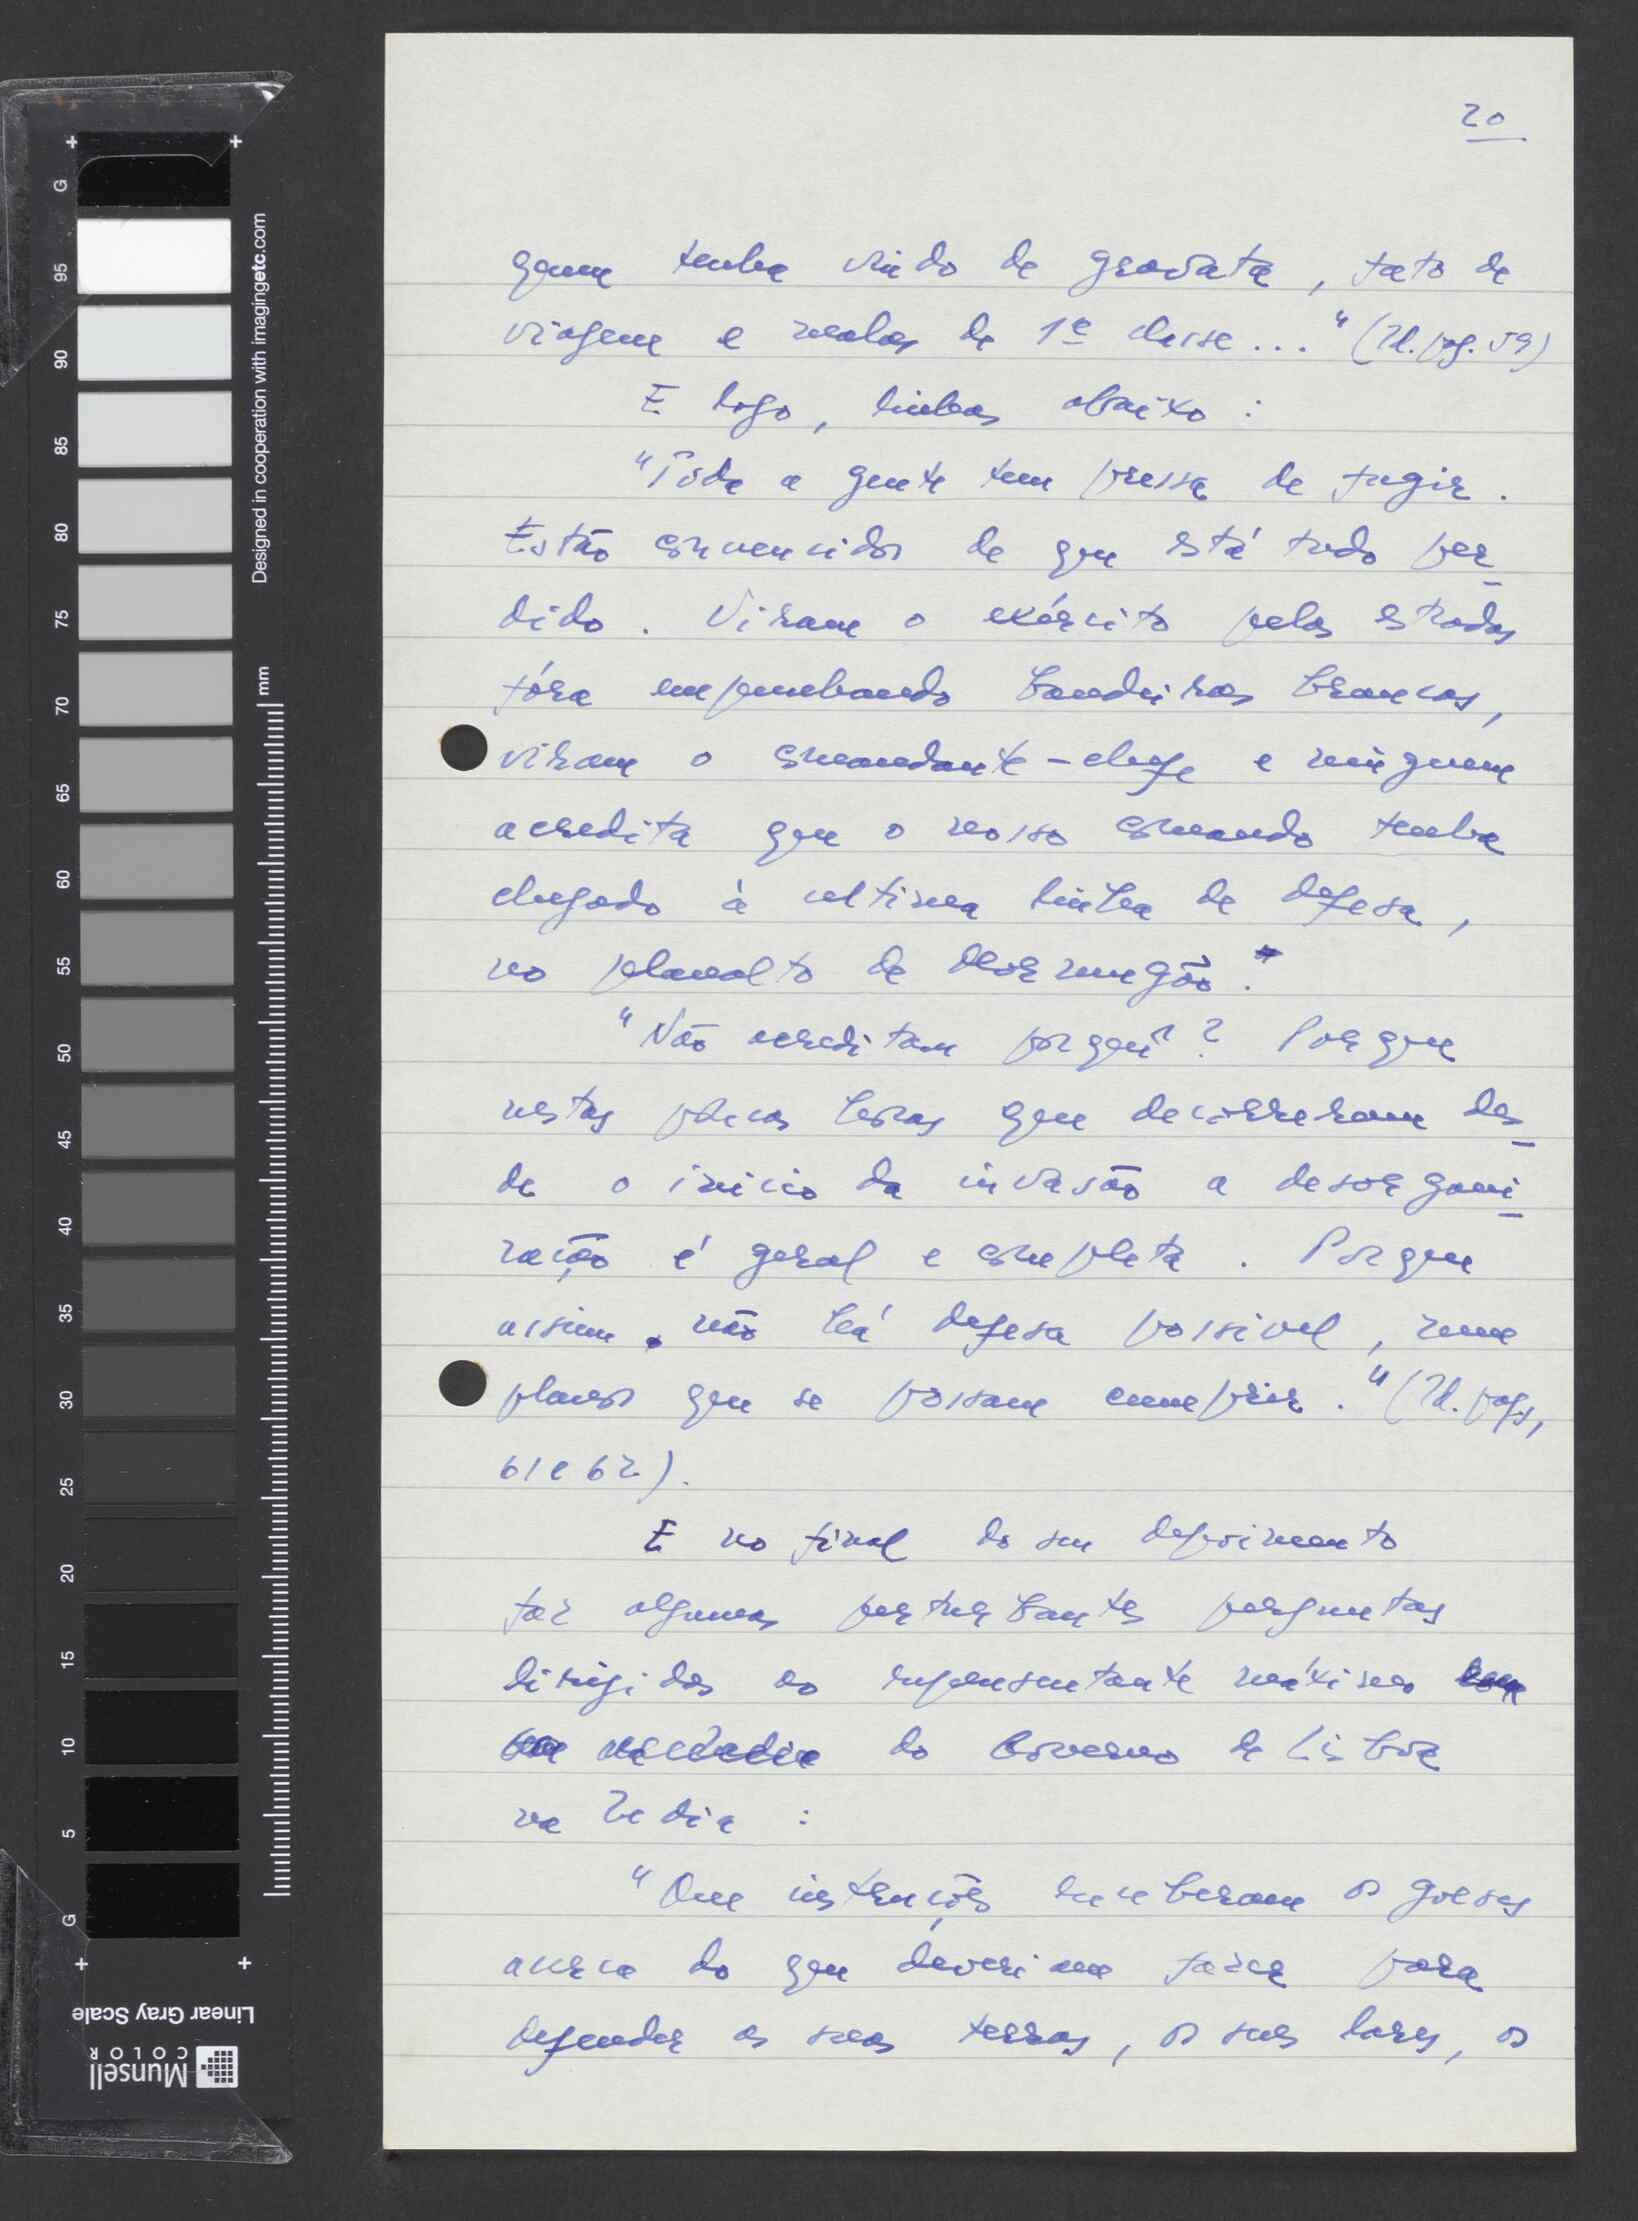 20
guem tenha vindo de gravata, fato de
viagem e malas de 1ª classe..." (Id. pag. 59)
E logo, linhas abaixo:
"Tôda a gente tem pressa de fugir.
Estão convencidos de que está tudo per-
dido. Viram o exército pelas estradas
fóra empunhando bandeiras brancas,
viram o comandante-chefe e ninguem
acredita que o nosso comando tenha
chegado à ultima linha de defesa,
no planalto de Mormugão."
"Não acreditam porquê? Porque
nestas poucas horas que decorreram des-
de o inicio da invasão a desorgani-
zação é geral e completa. Porque
assim, não há defesa possivel, nem
planos que se possam cumprir." (Id. pags,
61 e 62).
E no final do seu depoimento
faz algumas perturbantes perguntas
dirigidas ao representante máximo
do Governo de Lisboa
na India:
"Que instruções receberam os goeses
acerca do que deveriam fazer para
defender as suas terras, os seus lares, os
G
95
90
85
80
75
70
65
60
55
50
45
40
35
30
25
20
15
10
5
G
Designed in cooperation with imagingetc.com
mm
Linear Gray Scale
Munsell
COLOR